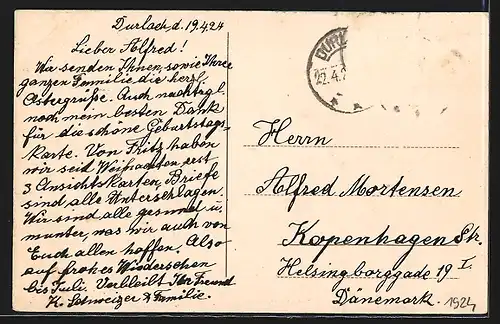 Durlach, d. 19.4.24
Lieber Alfred!
Wir senden Ihnen, sowie Ihrer
ganzen Familie die herzl.
Ostergrüße. Auch nachtrgl.
noch mein besten Dank
für die schöne Geburtstags-
karte. Von Fritz haben
wir seid Weihnachten erst
3 Ansichtskarten, Briefe
sind alle Unterschlagen.
Wir sind alle gesund u.
munter, was wir auch von
Euch allen hoffen. Also
auf frohes Wiedersehen
bis Juli. Verbleibt Ihr Freund
K. Schweizer & Familie.
DURL
22.4.2
Herrn
Alfred Mortensen
Kopenhagen Str.
Helsingborggade 19 I.
Dänemark.
1924